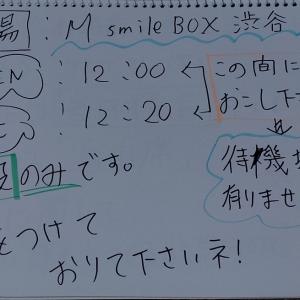 場 : M smile BOX 渋谷
EN : 12:00
この間に
: 12:20
おこし下
のみです。
待機場
有りませ
をつけて
おりて下さいネ!